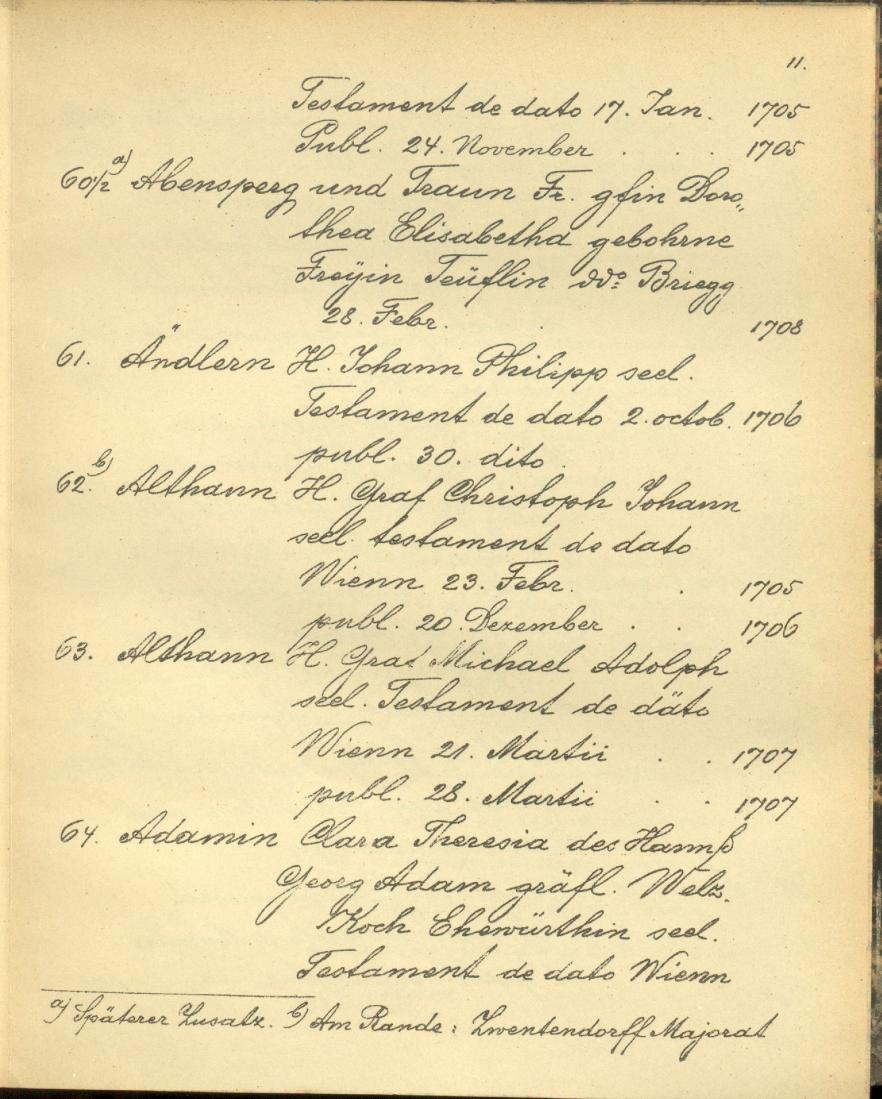 11.
Testament de dato 17. Jan. 1705
Publ. 24. November . . . 1705
60 1/2 a) Abensperg und Traun Fr. gfin Doro„
thea Elisabetha gebohrne
Freÿin Teüflin ddo: Briegg
28. Febr. . 1708
61. Ändlern H. Johann Philipp seel.
Testament de dato 2. octob. 1706
publ. 30. dito.
62. b) Althann H. Graf Christoph Johann
seel. testament de dato
Wienn 23. Febr. . 1705
publ. 20. Dezember . . 1706
63. Althann H. Graf Michael Adolph
seel. Testament de däto
Wienn 21. Martii . . 1707
publ. 28. Martii . . 1707
64. Adamin Clara Theresia des Hannß
Georg Adam gräfl. Welz.
Koch Ehewürthin seel.
Testament de dato Wienn
a) Späterer Zusatz. b) Am Rande: Zwentendorff Majorat